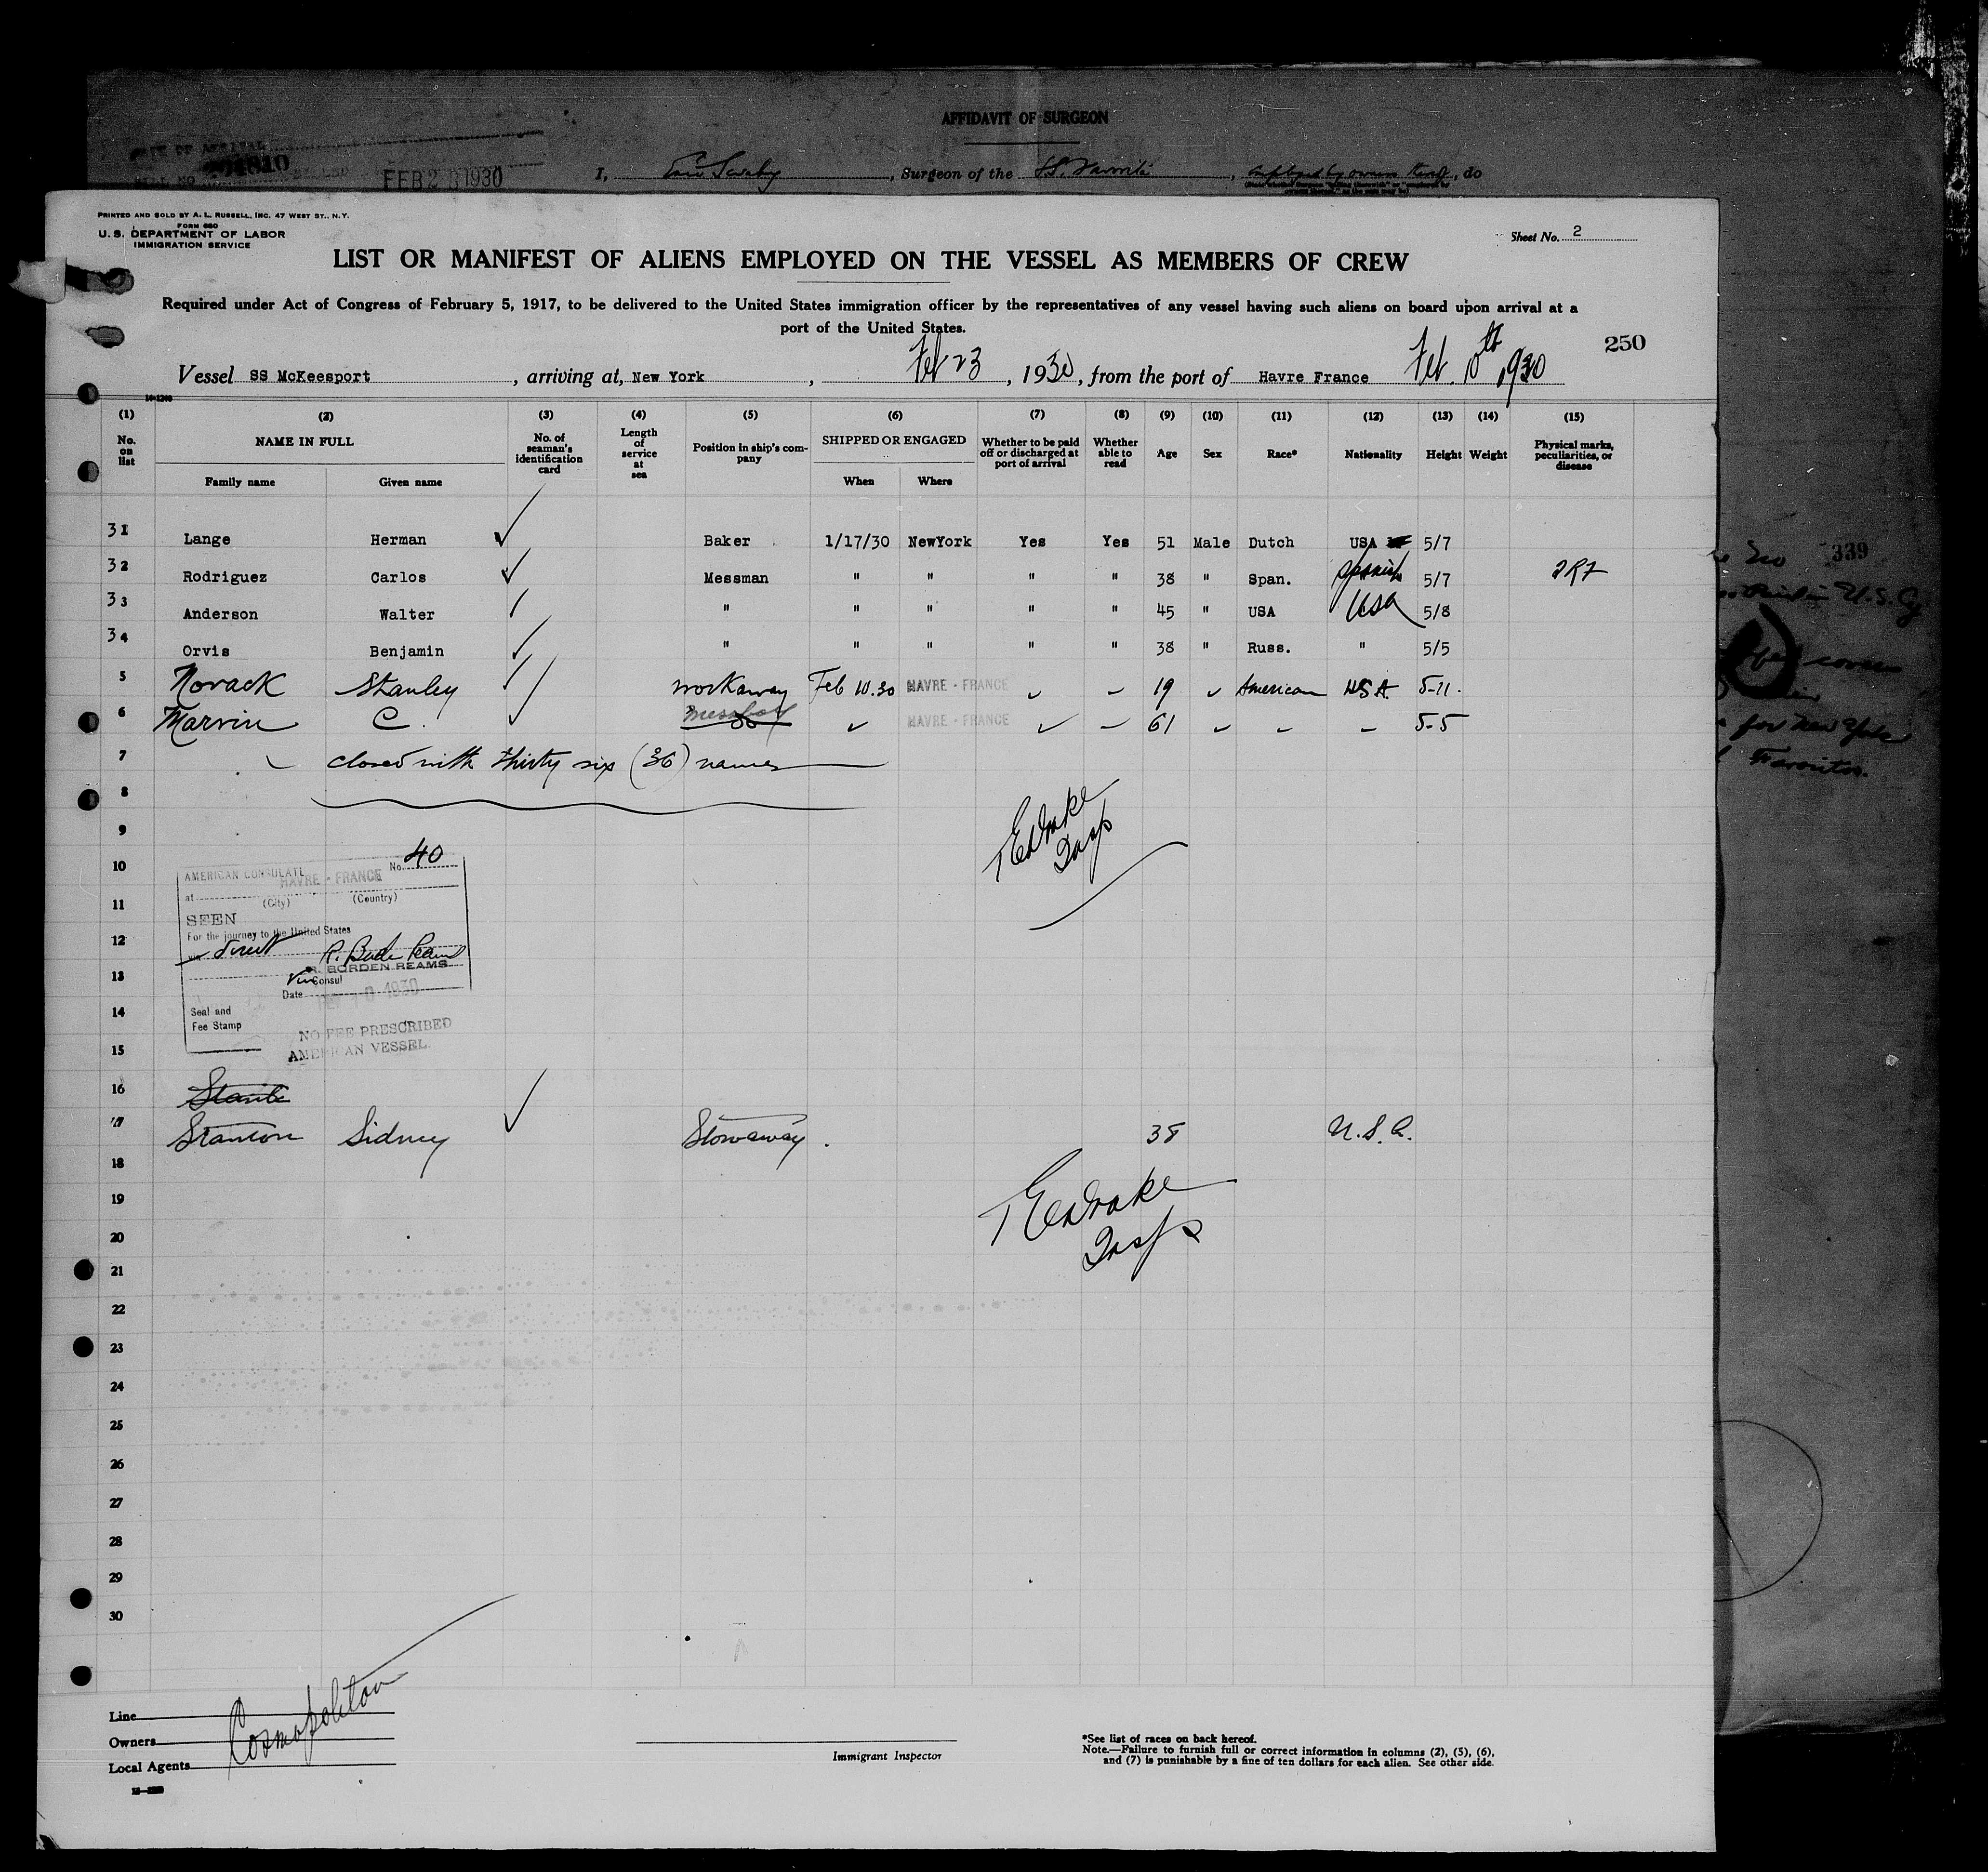 AFFIDAVIT OF SURGEON
DATE OF ARRIVAL
FEB 28 1930
I, , Surgeon of the SS. Favorita, employed by owners , do
PRINTED AND SOLD BY A. L. RUSSELL, INC. 47 WEST ST., N. Y.
FORM 680
U. S. DEPARTMENT OF LABOR
IMMIGRATION SERVICE
Sheet No. 2
LIST OR MANIFEST OF ALIENS EMPLOYED ON THE VESSEL AS MEMBERS OF CREW
Required under Act of Congress of February 5, 1917, to be delivered to the United States immigration officer by the representatives of any vessel having such aliens on board upon arrival at a
port of the United States.
250
Vessel SS McKeesport, arriving at, New York, Feb 23, 1930, from the port of Havre France Feb. 10th 1930
(1) (2) (3) (4) (5) (6) (7) (8) (9) (10) (11) (12) (13) (14) (15)
No. on list NAME IN FULL Family name Given name No. of seaman's identification card Length of service at sea Position in ship's company SHIPPED OR ENGAGED When Where Whether to be paid off or discharged at port of arrival Whether able to read Age Sex Race* Nationality Height Weight Physical marks, peculiarities, or disease
31 Lange Herman Baker 1/17/30 NewYork Yes Yes 51 Male Dutch USA 5/7
32 Rodriguez Carlos Messman " " " " 38 " Span. Spanish 5/7 2RF
33 Anderson Walter " " " " " 45 " USA USA 5/8
34 Orvis Benjamin " " " " " 38 " Russ. " 5/5
5 Novack Stanley workaway Feb 10.30 HAVRE - FRANCE 19 American USA 5-11.
6 Marvin C. messboy HAVRE - FRANCE 61 5-5
7 closed with thirty six (36) names
8
9
TEDrake
Insp
10
AMERICAN CONSULATE No. 40
at HAVRE - FRANCE
(City) (Country)
11
SEEN
For the journey to the United States
12
via direct
R. BORDEN REAMS
13
Vice Consul
Date 1930
14
Seal and
Fee Stamp
NO FEE PRESCRIBED
AMERICAN VESSEL.
15
16
17 Stanton Sidney Stowaway. 38 U.S.A.
18
19
TEDrake
20
Insp
21
22
23
24
25
26
27
28
29
30
Line
Owners
Local Agents
Cosmopolitan
Immigrant Inspector
*See list of races on back hereof.
Note.—Failure to furnish full or correct information in columns (2), (5), (6),
and (7) is punishable by a fine of ten dollars for each alien. See other side.
339
U.S.
for New York
Favorita.